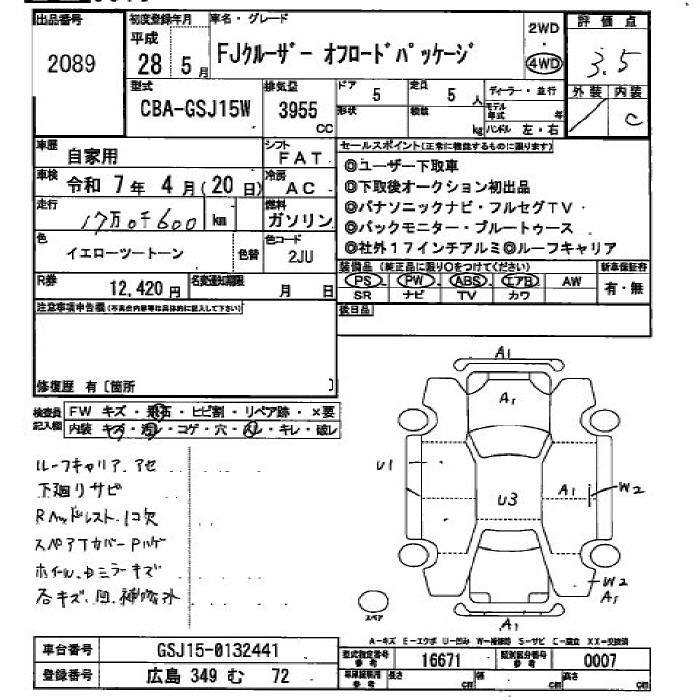 出品番号
2089
初度登録年月
平成
28 5 月
車名・グレード
FJクルーザー オフロードパッケージ
2WD
・
4WD
評価点
3.5
外装 内装
C
型式
CBA-GSJ15W
排気量
3955
CC
ドア
5
定員
5 人
形状
積載
kg
ディーラー・並行
モデル
年式 年
ハンドル 左・右
車歴
自家用
シフト
FAT
車検
令和 7 年 4 月 (20 日)
冷房
AC
走行
17万0千600 km
燃料
ガソリン
色
イエローツートーン
色替
色コード
2JU
R券
12,420 円
名変通知期限
月 日
セールスポイント(正常に機能するものに限ります)
◎ユーザー下取車
◎下取後オークション初出品
◎パナソニックナビ・フルセグTV
◎バックモニター・ブルートゥース
◎社外17インチアルミ◎ルーフキャリア
装備品 (純正品に限り○をつけてください)
PS PW ABS エアB AW
SR ナビ TV カワ
新車保証書
有・無
注意事項申告欄(不具合内容等は具体的に記入して下さい)
後日品
修復歴 有〔箇所 〕
検査員
記入欄
FW キズ・飛石・ヒビ割・リペア跡・×要
内装 キズ・汚レ・コゲ・穴・ハレ・キレ・破レ
ルーフキャリア、アセ
下廻りサビ
スペアTカバー
A1
A1
U1
U3
A1
W2
W2
A1
スペア
A－キズ E－エクボ U－凹み W－補修跡 S－サビ C－腐食 XX－交換済
車台番号
GSJ15-0132441
登録番号
広島 349 む 72
型式指定番号
参考
16671
類別区分番号
参考
0007
車庫証明用
参考
長さ cm
幅 cm
高さ cm